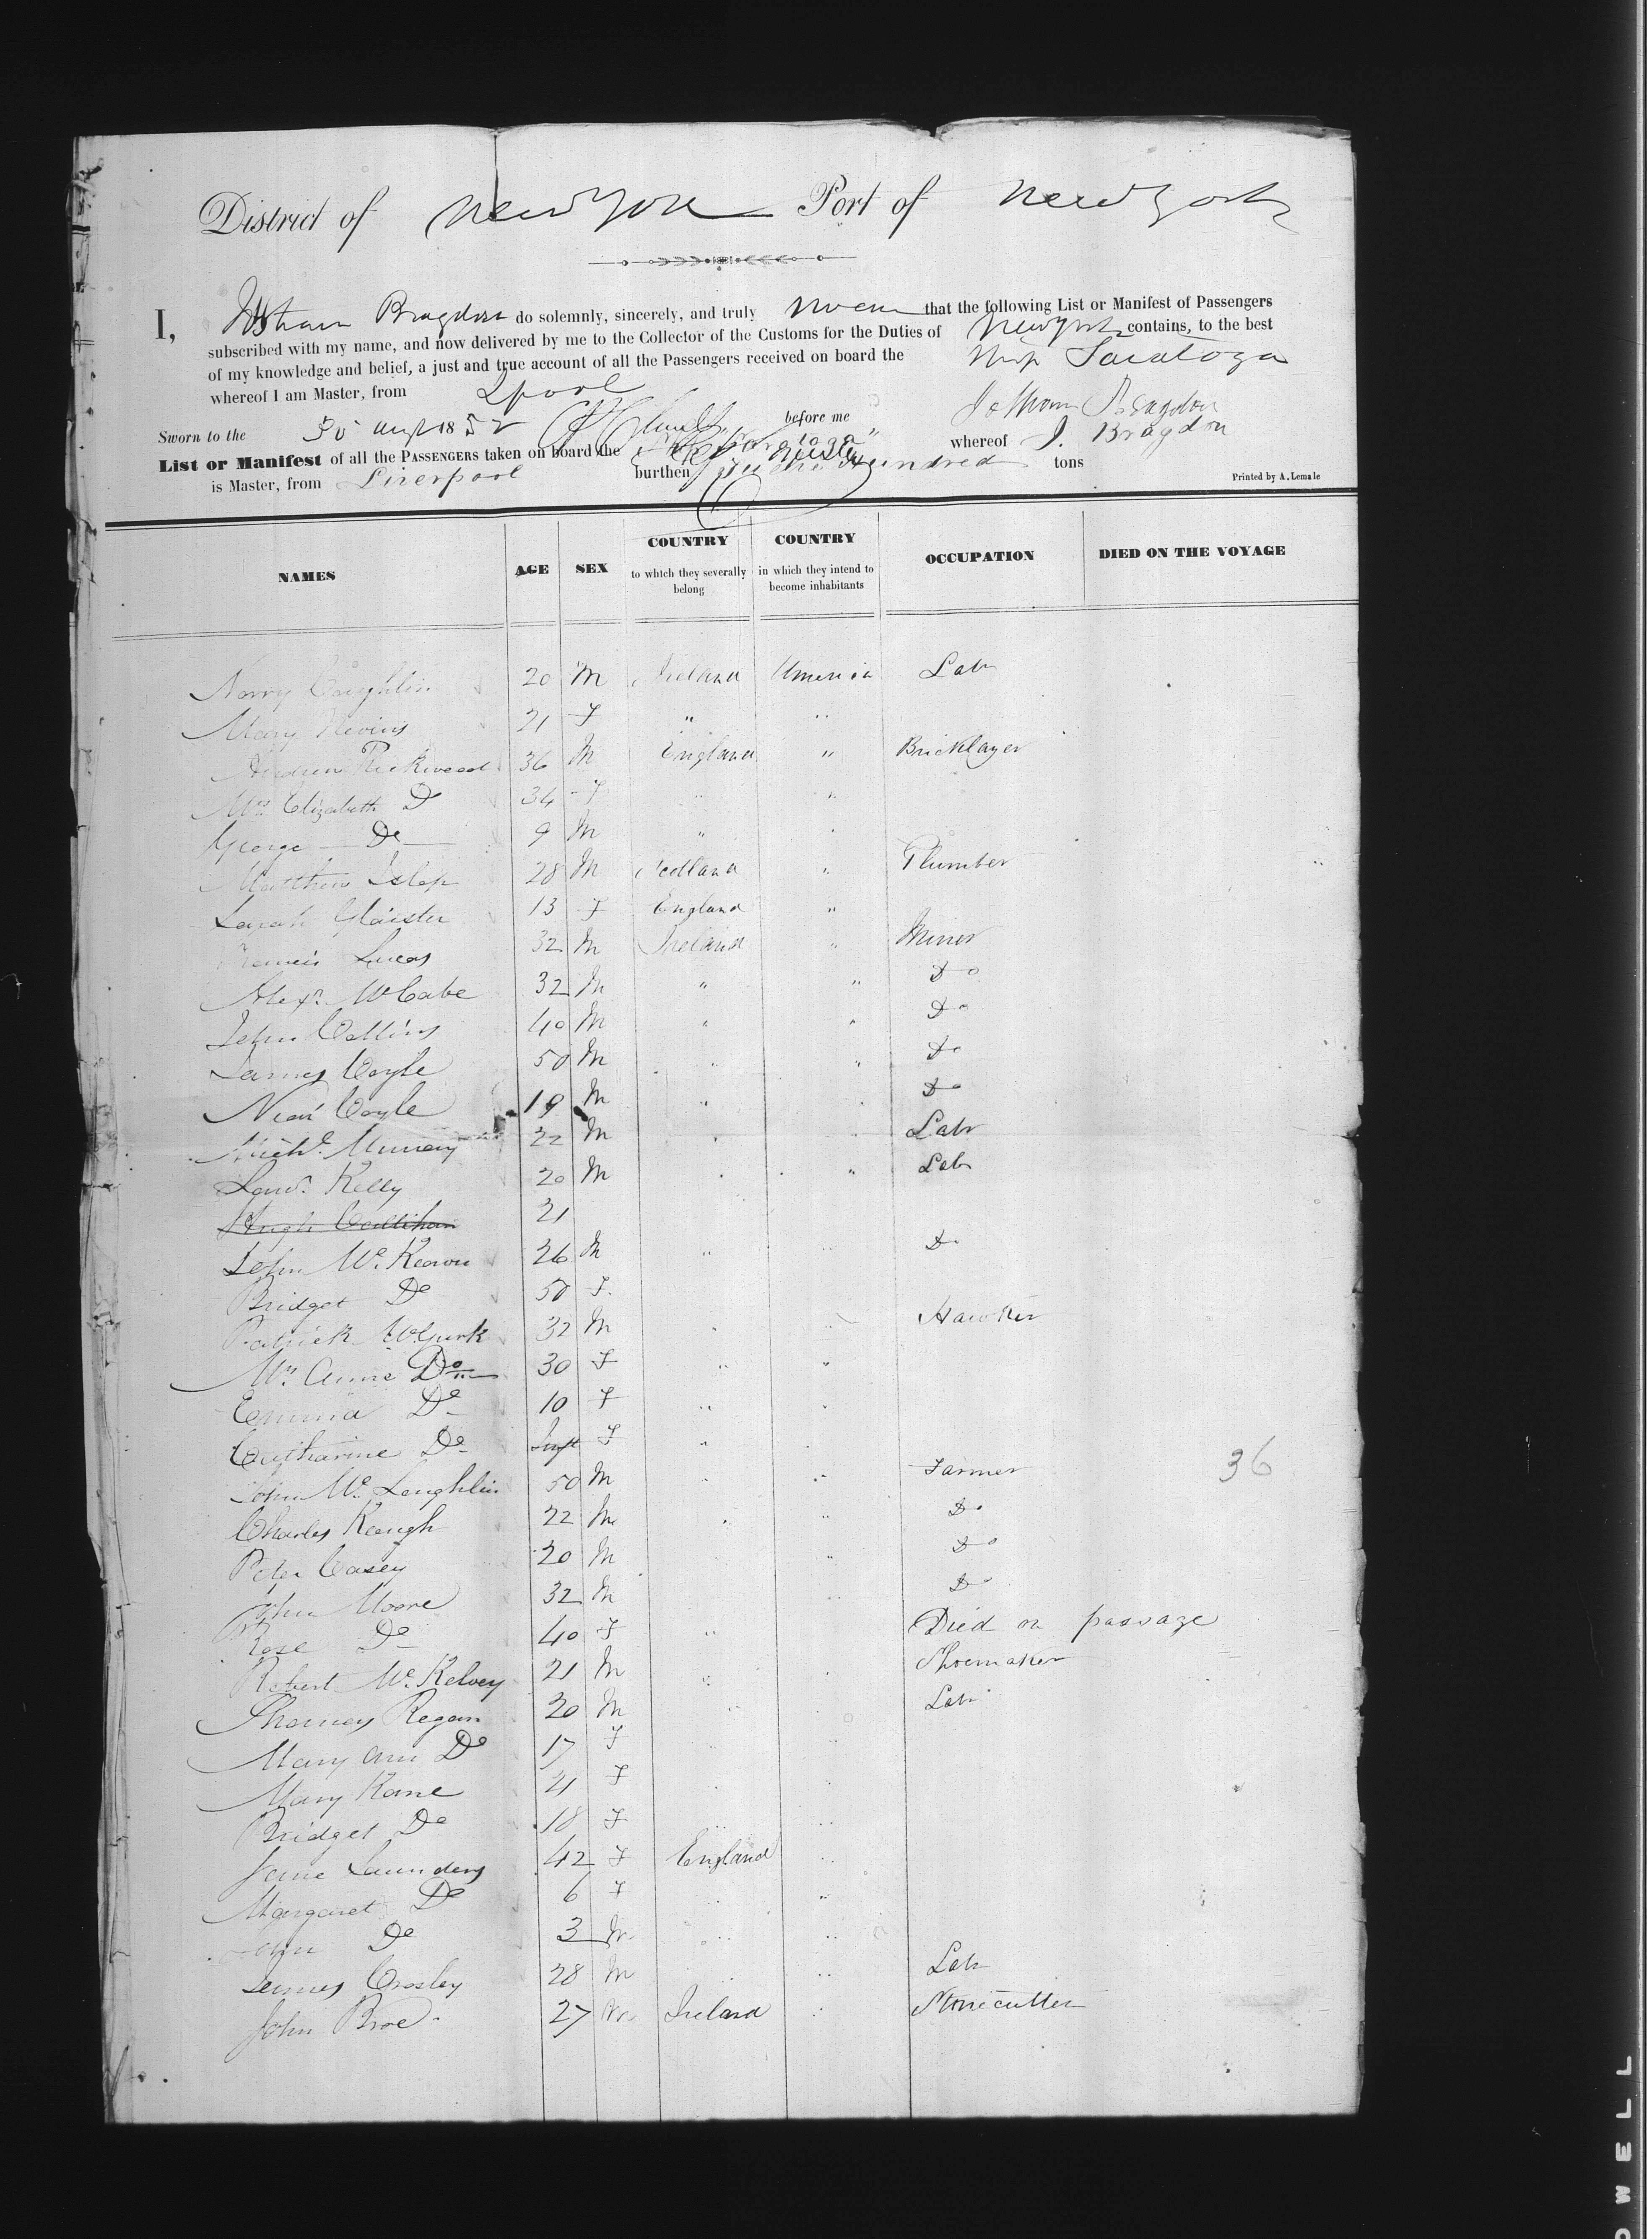 District of New York Port of New York
I, Jotham Bragdon do solemnly, sincerely, and truly swear that the following List or Manifest of Passengers
subscribed with my name, and now delivered by me to the Collector of the Customs for the Duties of New York contains, to the best
of my knowledge and belief, a just and true account of all the Passengers received on board the Ship Saratoga
whereof I am Master, from Lpool
Jotham Bragdon
Sworn to the 30 Augt 1852 before me
List or Manifest of all the PASSENGERS taken on board the Ship Saratoga whereof J. Bragdon
is Master, from Liverpool burthen hundred tons
Printed by A. Lemale
NAMES AGE SEX COUNTRY to which they severally belong COUNTRY in which they intend to become inhabitants OCCUPATION DIED ON THE VOYAGE
Norry Coughlin 20 M Ireland America Labr
Mary Nevins 21 F " "
Andrew Rickwood 36 M England " Bricklayer
Mrs Elizabeth Do 34 F " "
George Do 9 M " "
Matthew Islep 28 M Scotland " Plumber
Sarah Glaister 13 F England "
Francis Lucas 32 M Ireland " Miner
Alexr McCabe 32 M " " Do
John Collins 40 M " " Do
James Coyle 50 M " " Do
Neal Coyle 19 M " " Do
Michl Murray 22 M " " Labr
Lawr. Kelly 20 M " " Labr
Hugh Callihan 21
John McKeown 26 M " " Do
Bridget Do 50 F
Patrick McGurk 32 M " " Hawker
Mrs Anne Do 30 F " "
Emma Do 10 F " "
Catharine Do Inft F " "
John McLoughlin 50 M " " Farmer
36
Charles Keough 22 M " " Do
Peter Casey 20 M " Do
John Moore 32 M " Do
Rose Do 40 F " Died on passage
Robert McKelvey 21 M " " Shoemaker
Thomas Regan 20 M " " Labr
Mary Ann Do 17 F " "
Mary Kane 21 F " "
Bridget Do 18 F " "
Jane Saunders 42 F England "
Margaret Do 6 F " "
John Do 3 M " "
James Crosley 28 M " " Labr
John Broe 27 M Ireland " Stonecutter
OWELL